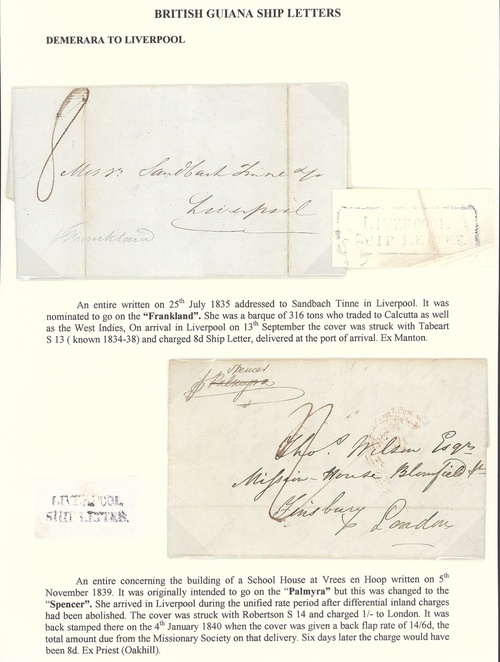 BRITISH GUIANA SHIP LETTERS
DEMERARA TO LIVERPOOL
8
Messrs Sandbach Tinne & Co
Liverpool
p Frankland
LIVERPOOL
SHIP LETTER
An entire written on 25th July 1835 addressed to Sandbach Tinne in Liverpool. It was
nominated to go on the “Frankland”. She was a barque of 316 tons who traded to Calcutta as well
as the West Indies, On arrival in Liverpool on 13th September the cover was struck with Tabeart
S 13 ( known 1834-38) and charged 8d Ship Letter, delivered at the port of arrival. Ex Manton.
Spencer
p Palmyra
Thos. Wilson Esqr
Mission-House Blomfield St
Finsbury
London
LIVERPOOL
SHIP LETTER
An entire concerning the building of a School House at Vrees en Hoop written on 5th
November 1839. It was originally intended to go on the “Palmyra” but this was changed to the
“Spencer”. She arrived in Liverpool during the unified rate period after differential inland charges
had been abolished. The cover was struck with Robertson S 14 and charged 1/- to London. It was
back stamped there on the 4th January 1840 when the cover was given a back flap rate of 14/6d, the
total amount due from the Missionary Society on that delivery. Six days later the charge would have
been 8d. Ex Priest (Oakhill).